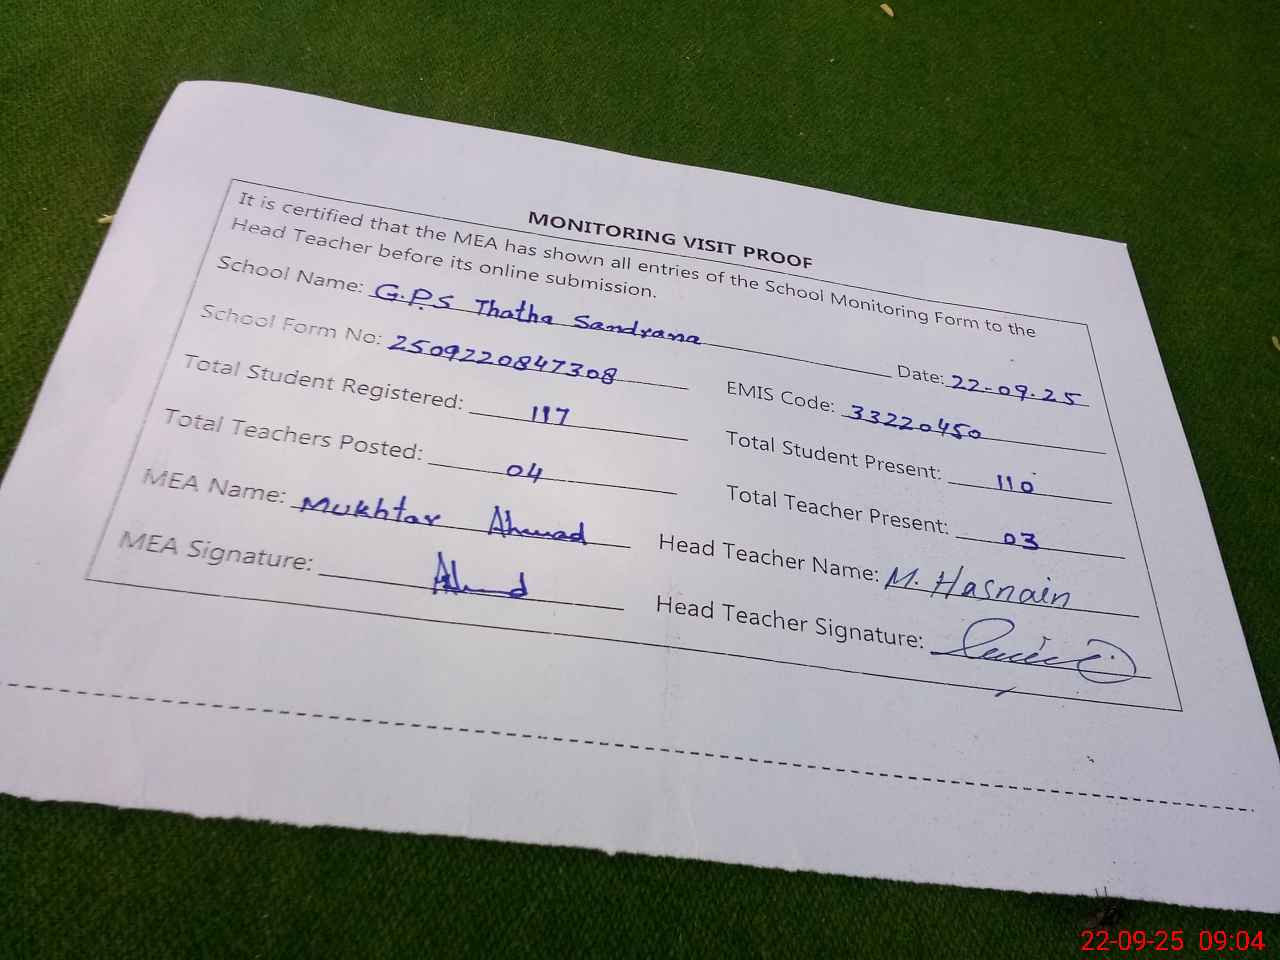 MONITORING VISIT PROOF
It is certified that the MEA has shown all entries of the School Monitoring Form to the
Head Teacher before its online submission.
School Name: G.P.S Thatha Sandrana Date: 22-09.25
School Form No: 2509220847308 EMIS Code: 33220450
Total Student Registered: 117 Total Student Present: 110
Total Teachers Posted: 04 Total Teacher Present: 03
MEA Name: Mukhtar Ahmad Head Teacher Name: M. Hasnain
MEA Signature: Ahmd Head Teacher Signature:
22-09-25 09:04